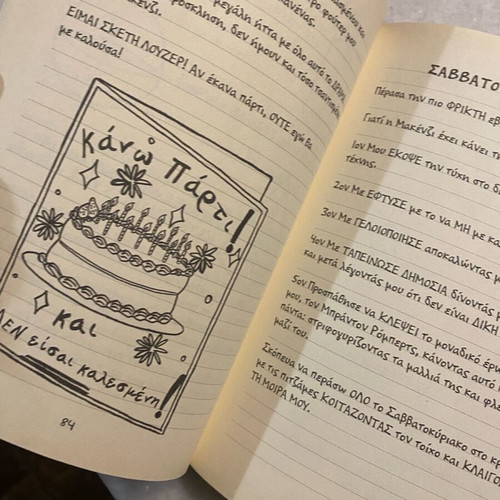 μεγάλη ήττα με όλο αυτό το
πρόσκληση, δεν ήμουν και τόσο
ΕΙΜΑΙ ΣΚΕΤΗ ΛΟΥΖΕΡ! Αν έκανα πάρτι, ΟΥΤΕ εγώ θα
με καλούσα!
κάνω πάρτι!
και
ΔΕΝ είσαι καλεσμένη!
84
Πέρασα την πιο ΦΡΙΚΤΗ
Γιατί η Μακένζι έχει κάνει
1ον Μου ΕΚΟΨΕ την τύχη στο
τέχνης.
2ον Με ΕΦΤΥΣΕ με το να ΜΗ με
3ον Με ΓΕΛΟΙΟΠΟΙΗΣΕ αποκαλώντας
4ον Με ΤΑΠΕΙΝΩΣΕ ΔΗΜΟΣΙΑ δίνοντάς
και μετά λέγοντάς μου ότι δεν είναι ΔΙΚΗ
5ον Προσπάθησε να ΚΛΕΨΕΙ το μοναδικό
μου, τον Μπράντον Ρόμπερτς, κάνοντας αυτό
πάντα: στριφογυρίζοντας τα μαλλιά της και
μαζί του.
Σκόπευα να περάσω ΟΛΟ το Σαββατοκύριακο στο
με τις πιτζάμες ΚΟΙΤΑΖΟΝΤΑΣ τον τοίχο και
ΤΗ ΜΟΙΡΑ ΜΟΥ.